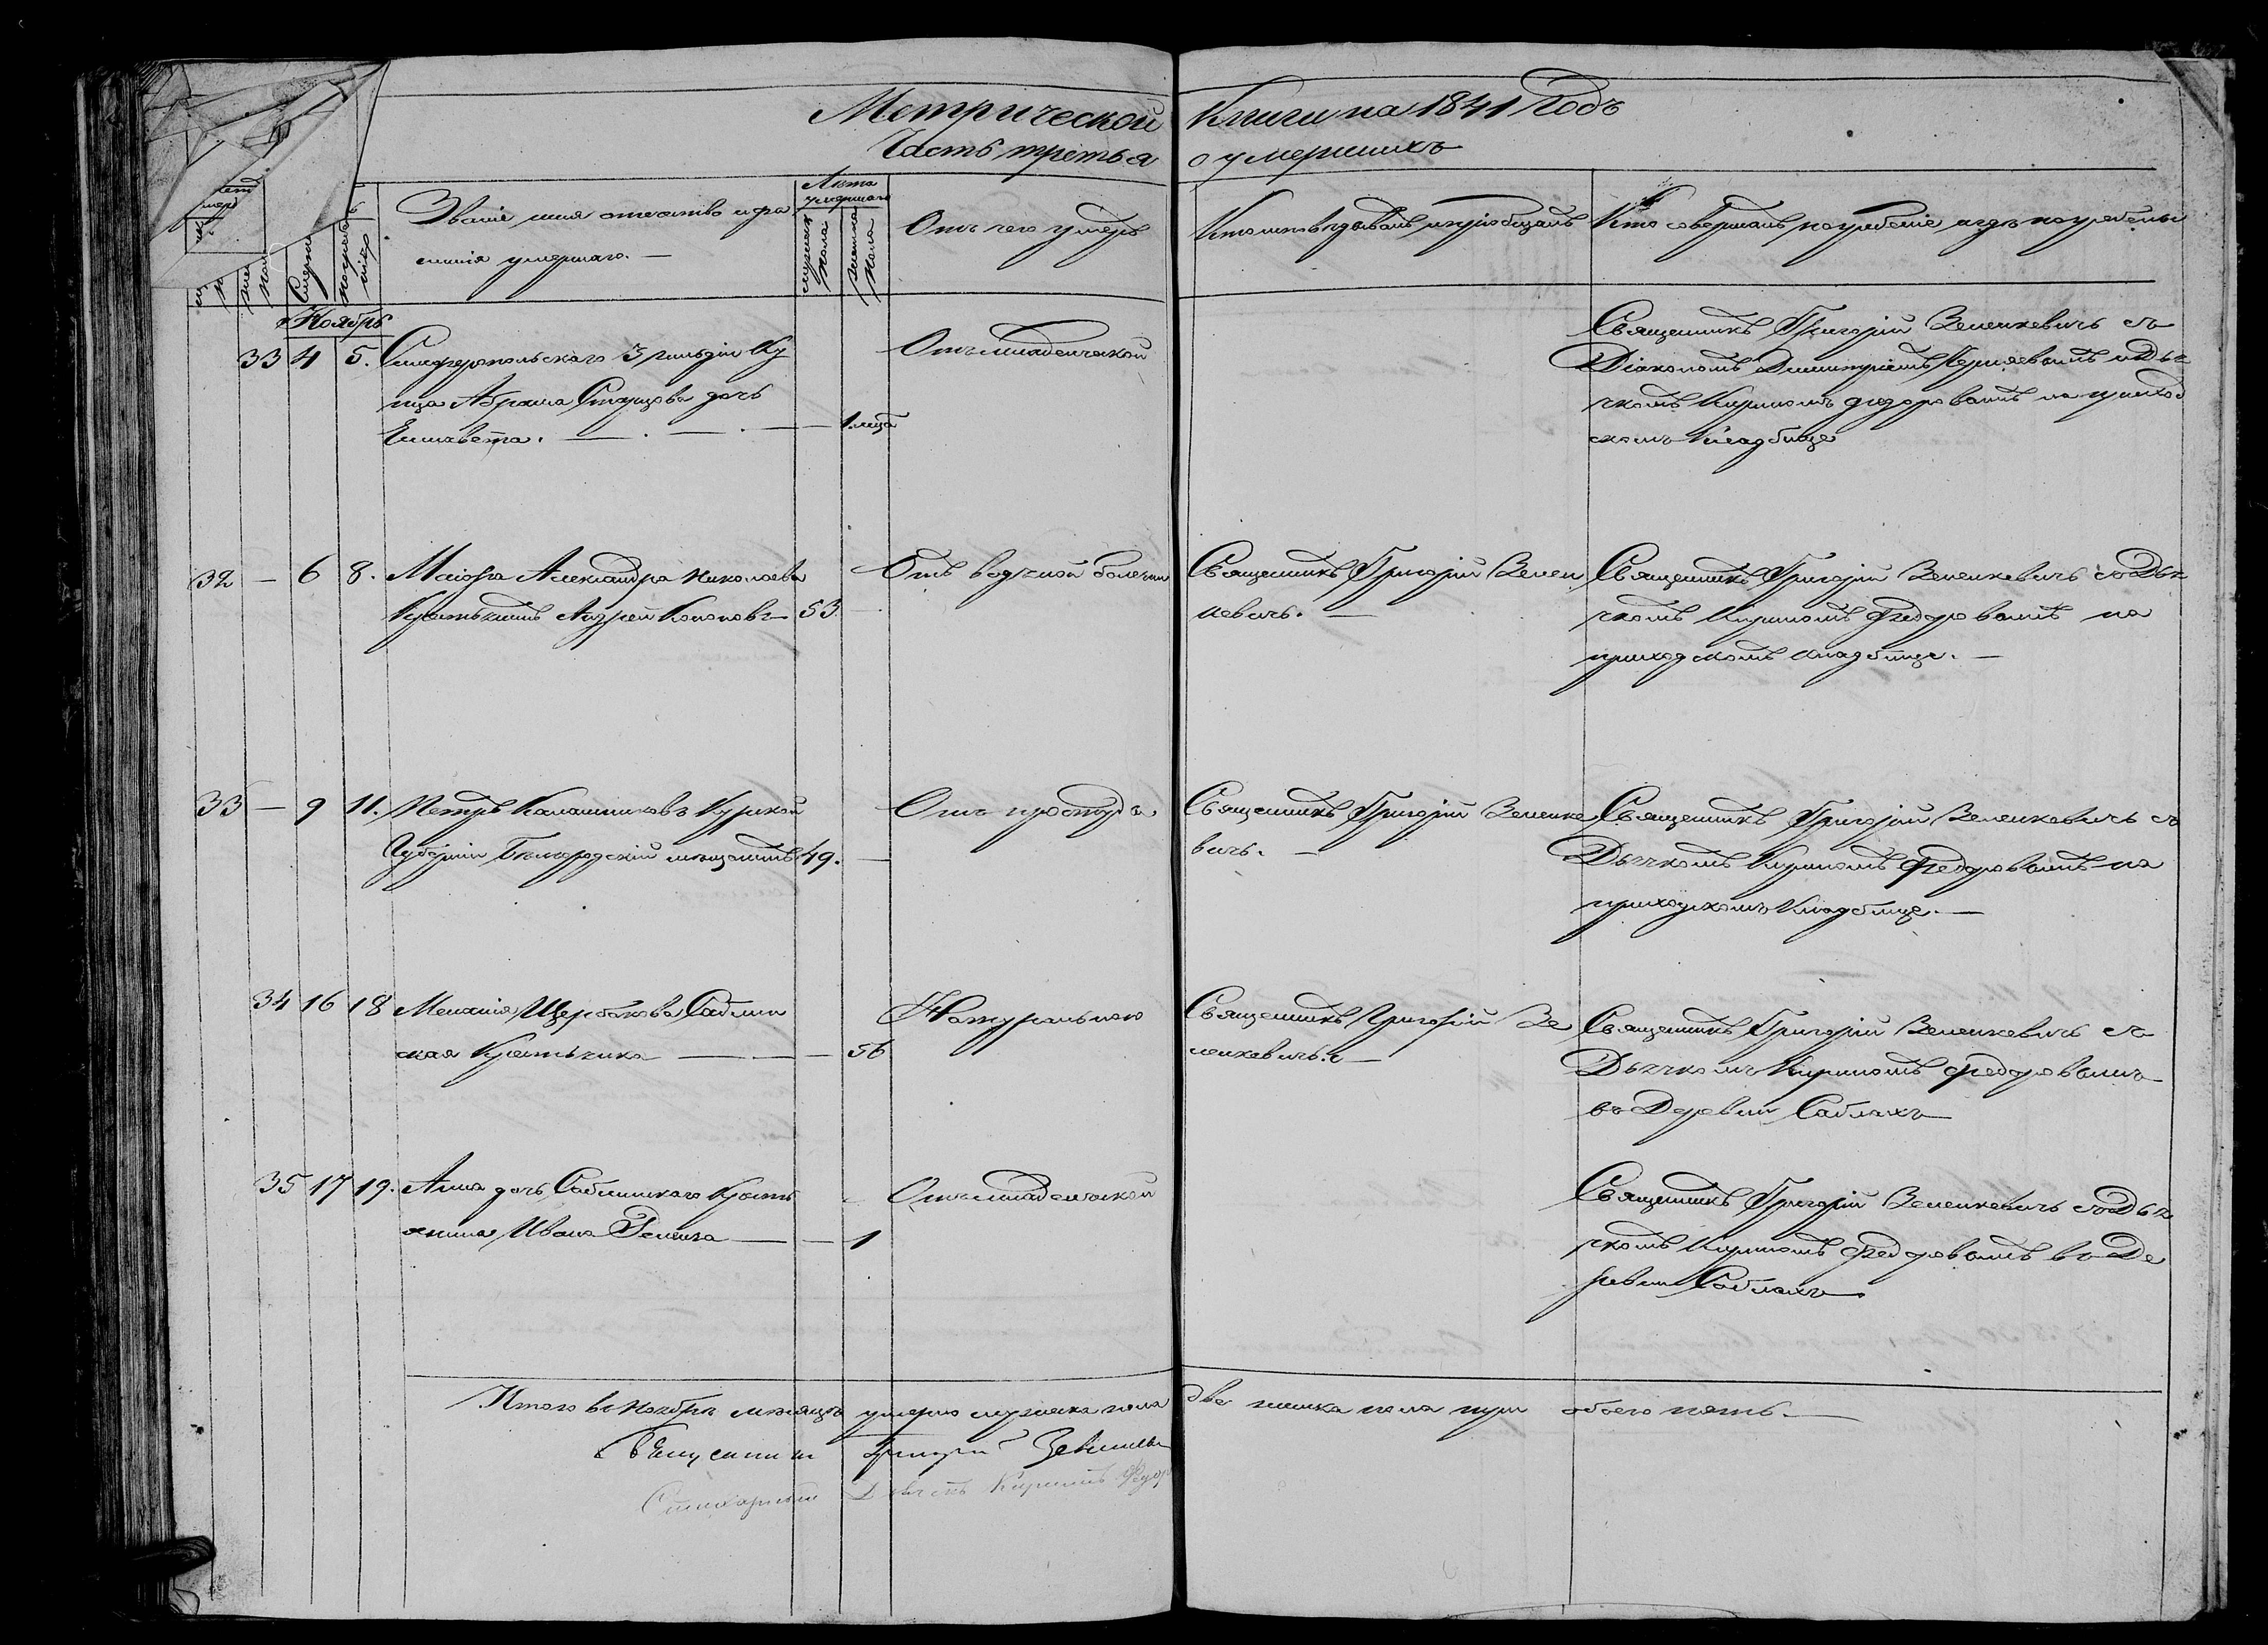 Метрической Книги на 1841 Годъ
Часть третья о умершихъ
Званіе имя отчество и фа
милія умершаго. —
Лѣта
умершаго
мужеска
пола
женска
пола
Отъ чего умеръ
Кто исповѣдывалъ и пріобщалъ
Кто совершалъ погребеніе и гдѣ погребены
Ноябрь
33 4 5. Симферопольскаго 3 гильдіи Ку
пца Абрама Старцова дочь
Елисавета. — 1. мѣца
Отъ младенческой
Священникъ Григорій Зеленкевичъ съ
Діакономъ Димитріемъ и Дья
чкомъ Кириломъ Федоровымъ на приход
скомъ Кладбище
32 — 6 8. Маіора Александра Николаева
Крестьянинъ Андрей Кононовъ 53.
Отъ водяной болезни
Священникъ Григорій Зелен
кевичъ. —
Священникъ Григорій Зеленкевичъ съ Дья
чкомъ Кириломъ Федоровымъ на
приходскомъ кладбище. —
33 — 9 11. Петръ Калашниковъ Курской
Губерніи Бѣлгородскій мещанинъ 49. —
Отъ простуды
Священникъ Григорій Зеленке
вичъ. —
Священникъ Григорій Зеленкевичъ съ
Дьячкомъ Кириломъ Федоровымъ на
приходскомъ Кладбище. —
34 16 18 Меланія Щербакова Саблин
ская Крестьянка — — 56
Натуральною
Священникъ Григорій Зе
ленкевичъ. —
Священникъ Григорій Зеленкевичъ съ
Дьячкомъ Кириломъ Федоровымъ
въ Деревни Саблахъ
35 17 19. Анна дочь Саблинскаго Кресть
янина Ивана — — 1
Отъ младенческой
Священникъ Григорій Зеленкевичъ съ Дья
чкомъ Кириломъ Федоровымъ въ Де
ревни Саблахъ
Итого въ Ноябрѣ месяцѣ умерло мужеска пола два женска пола три обоего пять. —
Священникъ Григорій Зеленкеви
Стихарный Дьячекъ Кирилъ Федор